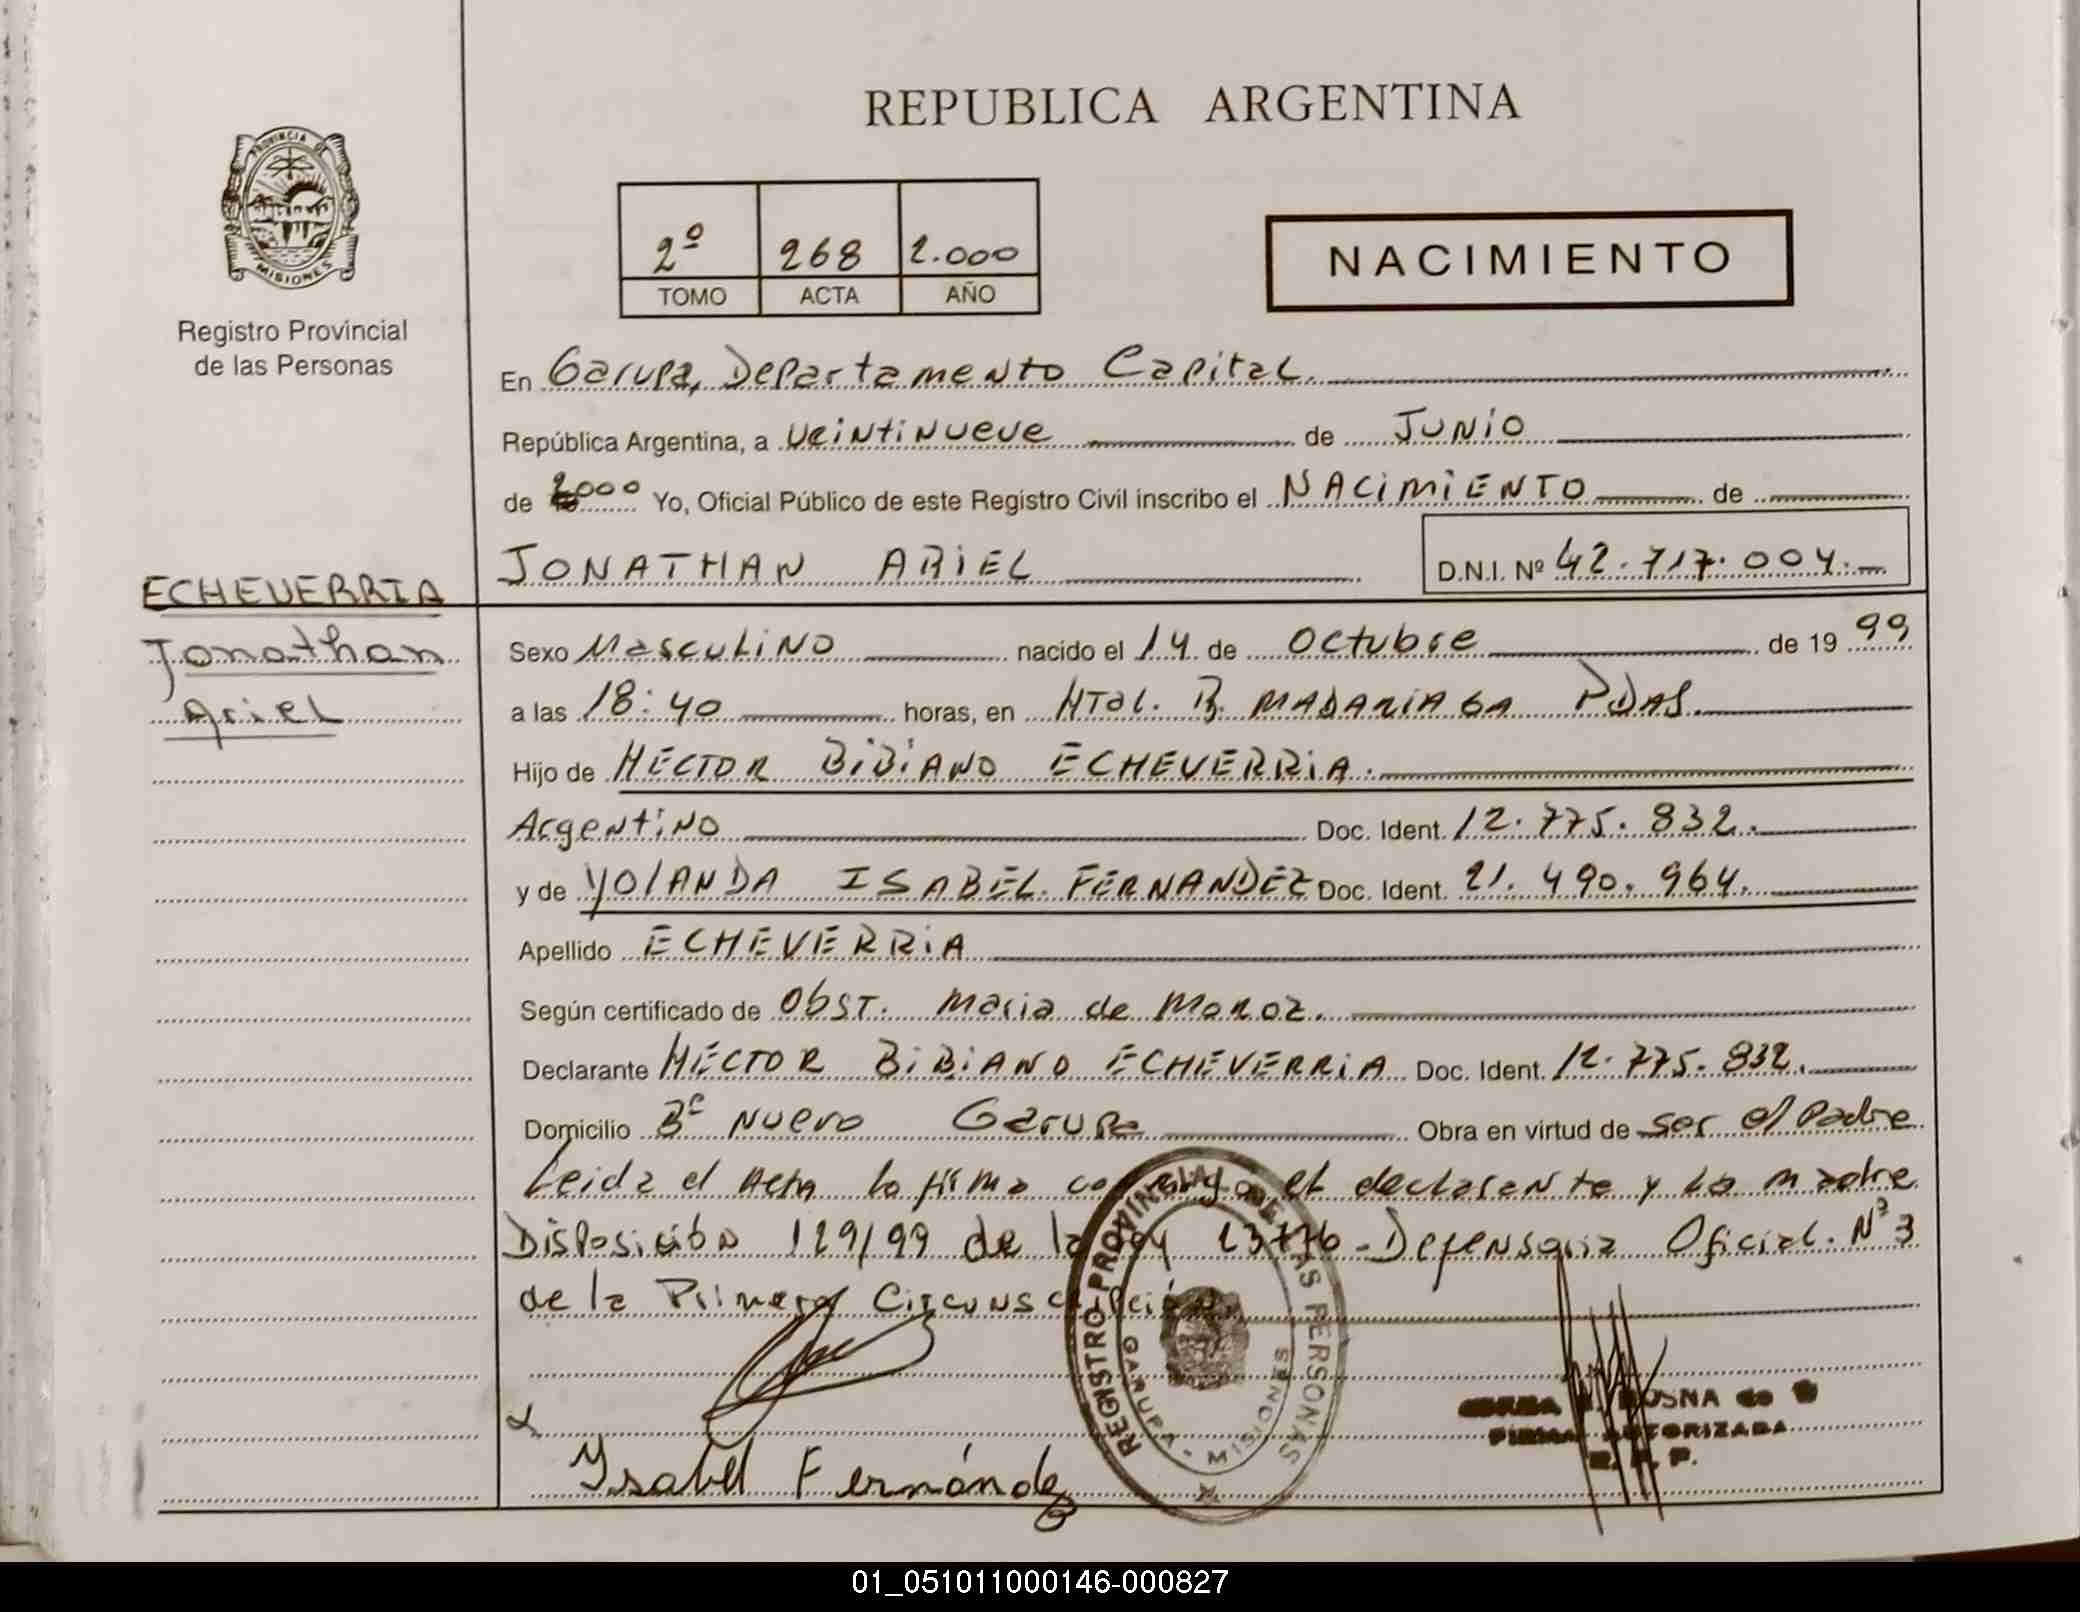 REPUBLICA ARGENTINA
PROVINCIA DE MISIONES
Registro Provincial
de las Personas
2º 268 2.000
TOMO ACTA AÑO
NACIMIENTO
En Garupa, Departamento Capital.
República Argentina, a veintinueve de Junio
de 2000 Yo, Oficial Público de este Registro Civil inscribo el NACIMIENTO de
JONATHAN ARIEL D.N.I. Nº 42.717.004.-
ECHEVERRIA
Jonathan
Ariel
Sexo Masculino nacido el 14 de Octubre de 1999
a las 18:40 horas, en HTal. R. MADARIAGA PDAS.
Hijo de HECTOR BIBIANO ECHEVERRIA.
Argentino Doc. Ident. 12.775.832.
y de YOLANDA ISABEL FERNANDEZ Doc. Ident. 21.490.964.
Apellido ECHEVERRIA
Según certificado de Obst. Maria de Moroz.
Declarante HECTOR BIBIANO ECHEVERRIA Doc. Ident. 12.775.832.
Domicilio Bº Nuevo Garupa Obra en virtud de ser el Padre
Leida el Acta la firma conmigo el declarante y la madre
Disposición 129/99 de la Ley 23776 - Defensoria Oficial Nº 3
de la Primera Circunscripción.
REGISTRO PROVINCIAL DE LAS PERSONAS
GARUPA - MISIONES
Ysabel Fernández
OSNA de
FIRMA AUTORIZADA
R. P. P.
01_051011000146-000827